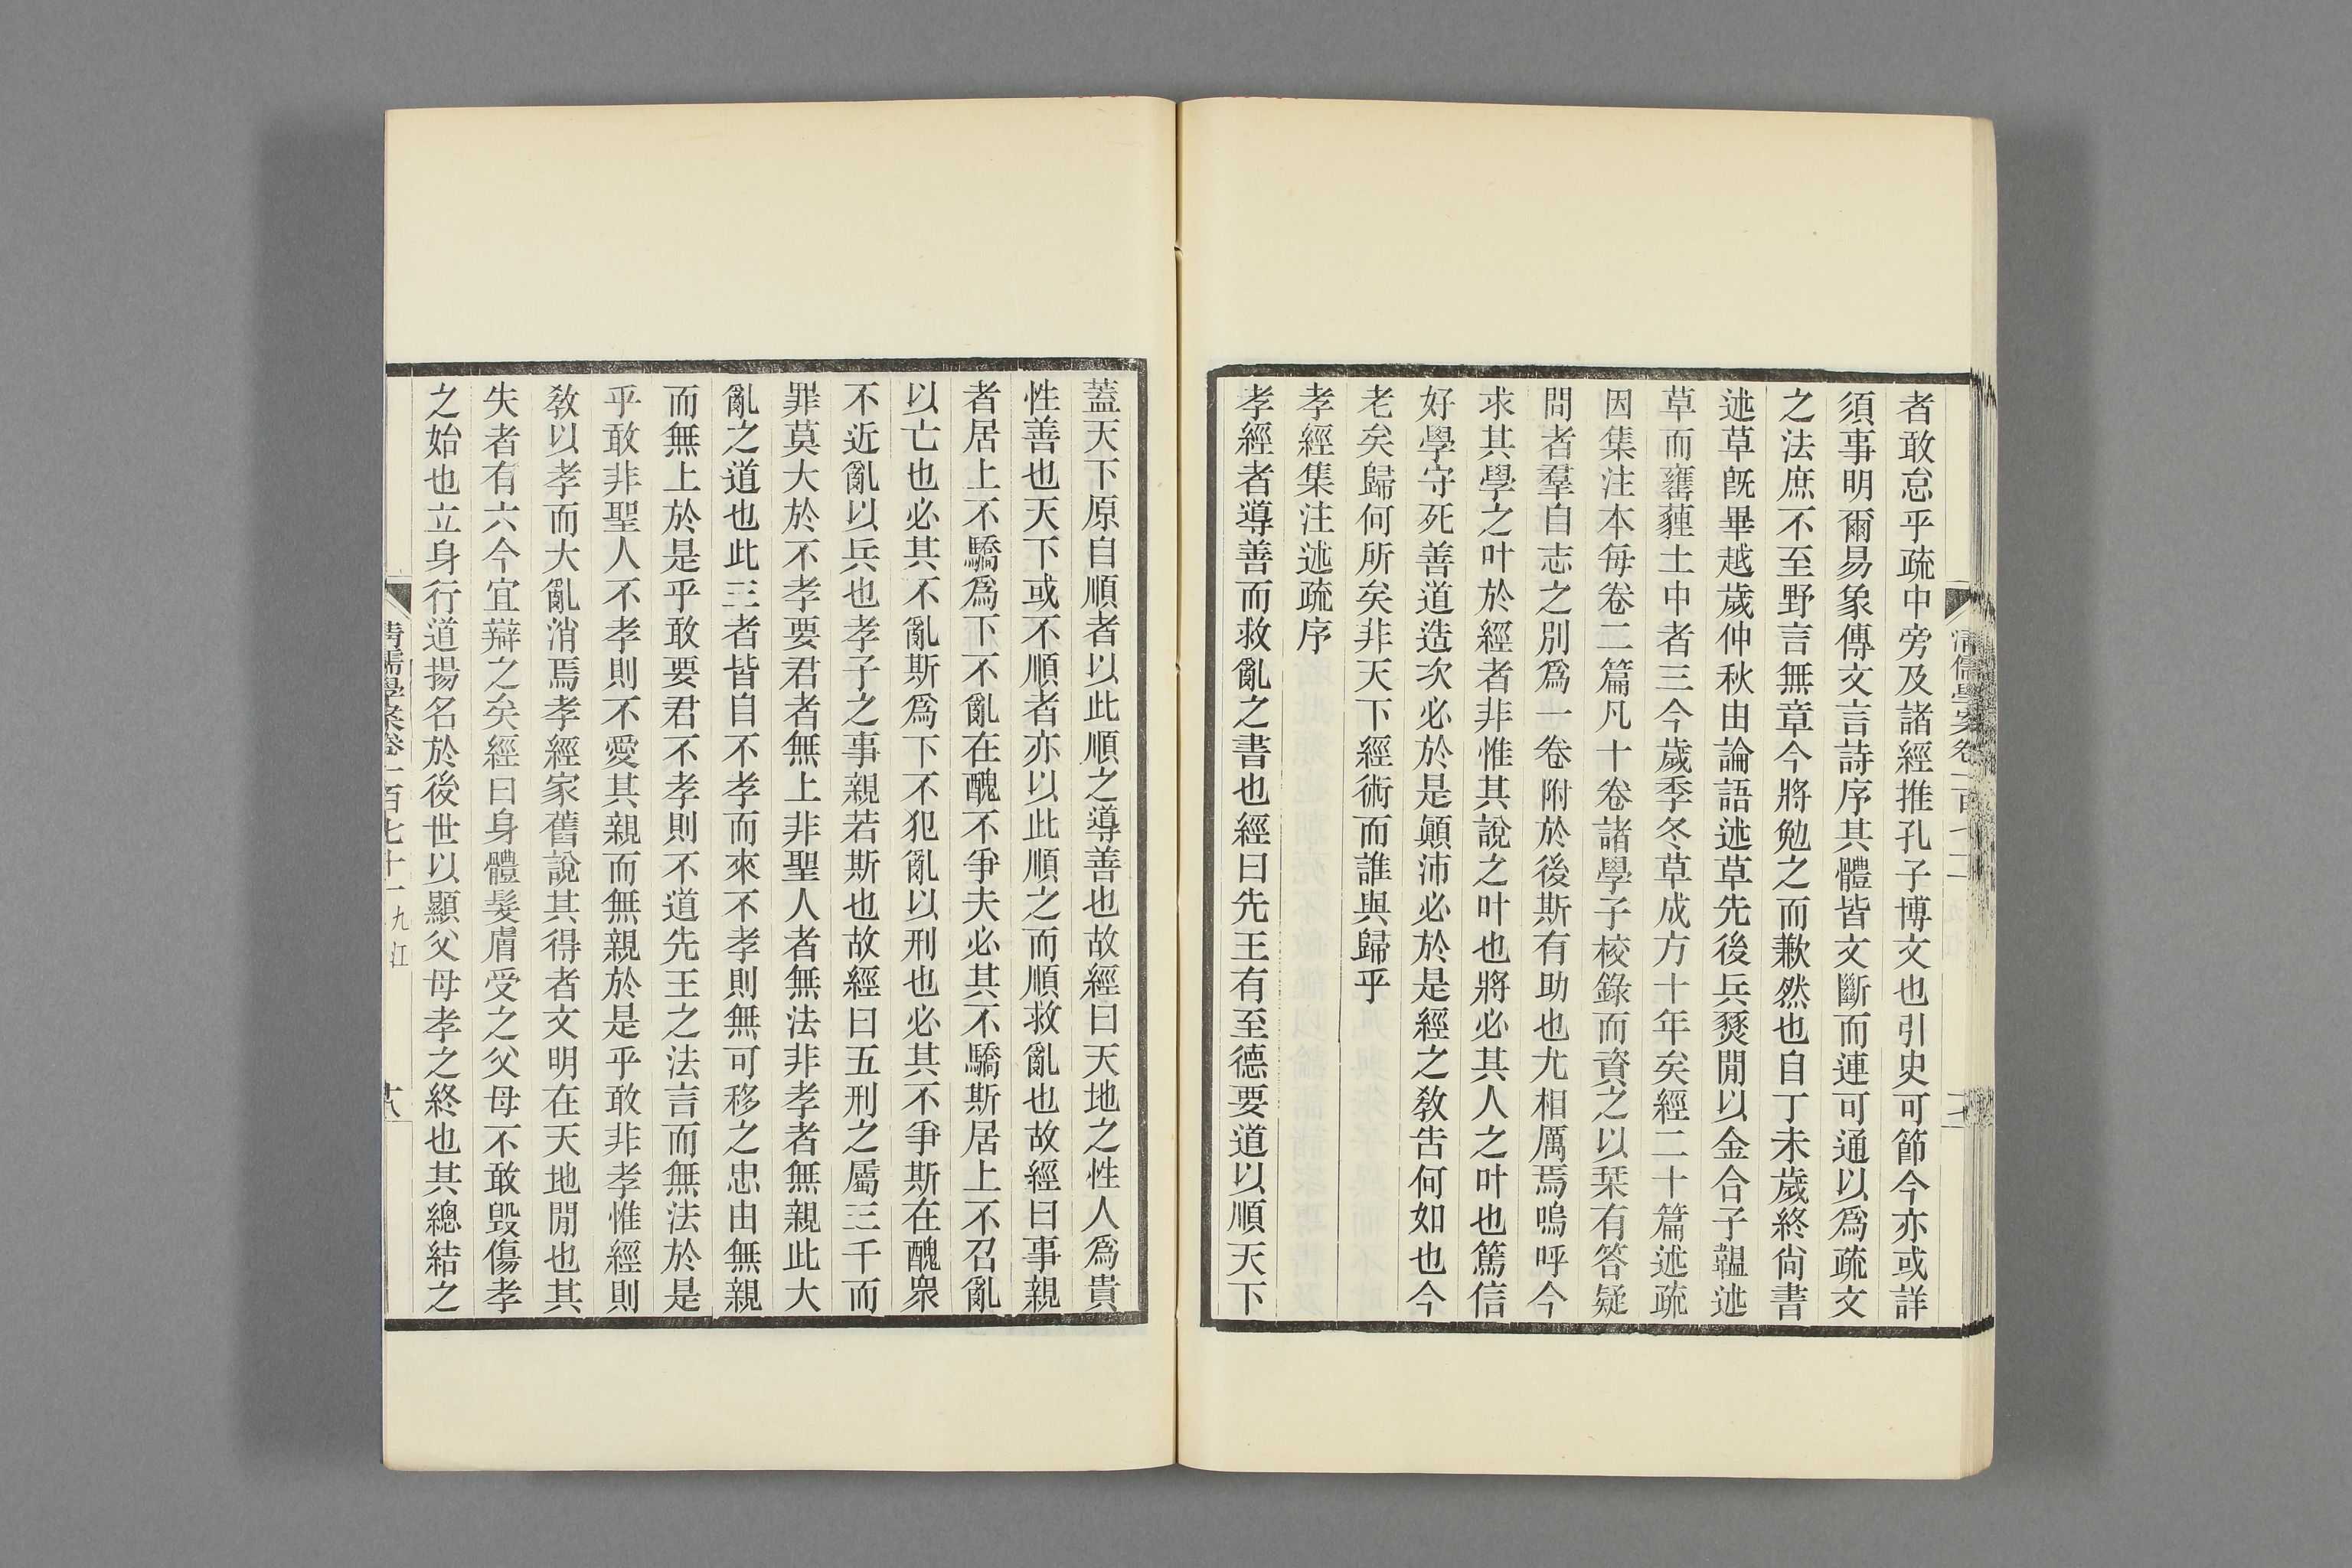 者敢怠乎疏中旁及諸經推孔子博文也引史可節今亦或詳
須事明爾易象傳文言詩序其體皆文斷而連可通以爲疏文
之法庶不至野言無章今將勉之而歉然也自丁未歲終尙書
述草旣畢越歲仲秋由論語述草先後兵燹閒以金合子韞述
草而虆薶土中者三今歲季冬草成方十年矣經二十篇述疏
因集注本每卷二篇凡十卷諸學子校錄而資之以栞有答疑
問者羣自志之別爲一卷附於後斯有助也尤相厲焉嗚呼今
求其學之叶於經者非惟其說之叶也將必其人之叶也篤信
好學守死善道造次必於是顚沛必於是經之敎告何如也今
老矣歸何所矣非天下經術而誰與歸乎
孝經集注述疏序
孝經者導善而救亂之書也經曰先王有至德要道以順天下
蓋天下原自順者以此順之導善也故經曰天地之性人爲貴
性善也天下或不順者亦以此順之而順救亂也故經曰事親
者居上不驕爲下不亂在醜不爭夫必其不驕斯居上不召亂
以亡也必其不亂斯爲下不犯亂以刑也必其不爭斯在醜衆
不近亂以兵也孝子之事親若斯也故經曰五刑之屬三千而
罪莫大於不孝要君者無上非聖人者無法非孝者無親此大
亂之道也此三者皆自不孝而來不孝則無可移之忠由無親
而無上於是乎敢要君不孝則不道先王之法言而無法於是
乎敢非聖人不孝則不愛其親而無親於是乎敢非孝惟經則
敎以孝而大亂消焉孝經家舊說其得者文明在天地閒也其
失者有六今宜辯之矣經曰身體髮膚受之父母不敢毀傷孝
之始也立身行道揚名於後世以顯父母孝之終也其總結之
清儒學案卷一百七十一 九江